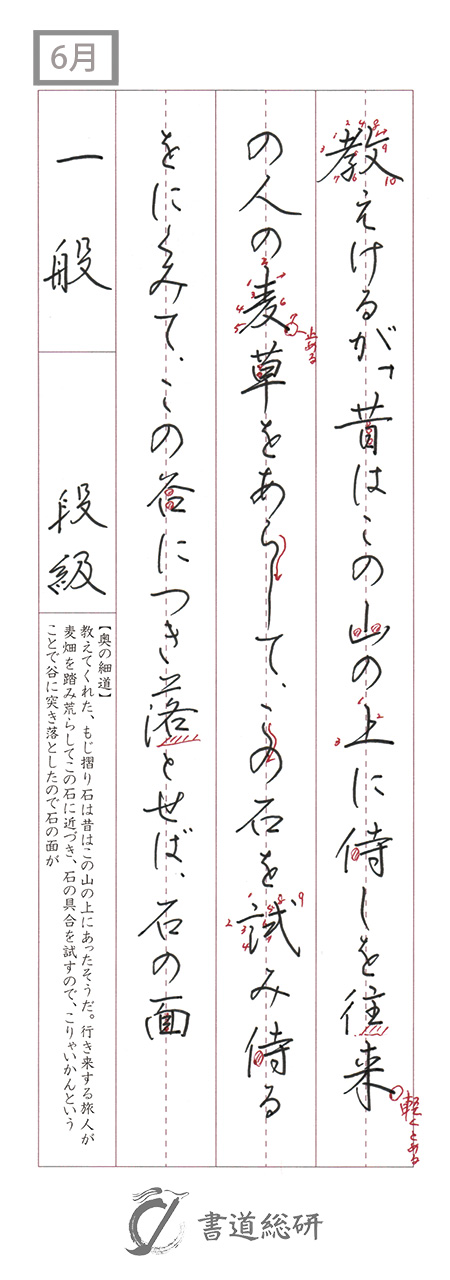 6月
教えけるが、「昔はこの山の上に侍しを往来
の人の麦草をあらして、この石を試み侍る
をにくみて、この谷につき落とせば、石の面
軽くとめる
止める
一般
段級
【奥の細道】
教えてくれた、もじ摺り石は昔はこの山の上にあったそうだ。行き来する旅人が
麦畑を踏み荒らしてこの石に近づき、石の具合を試すので、こりゃいかんという
ことで谷に突き落としたので石の面が
書道総研